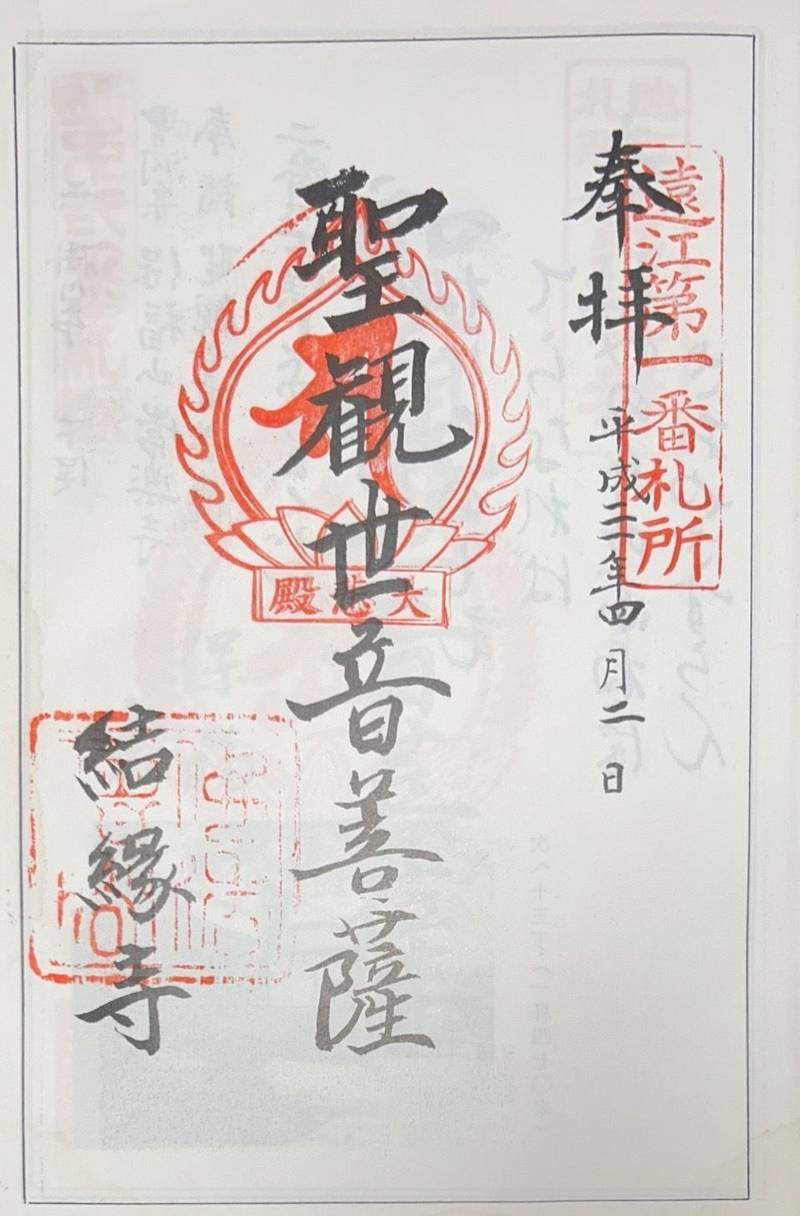 奉拝
遠江第一番札所
平成二二年四月二日
聖観世音菩薩
大悲殿
結縁寺